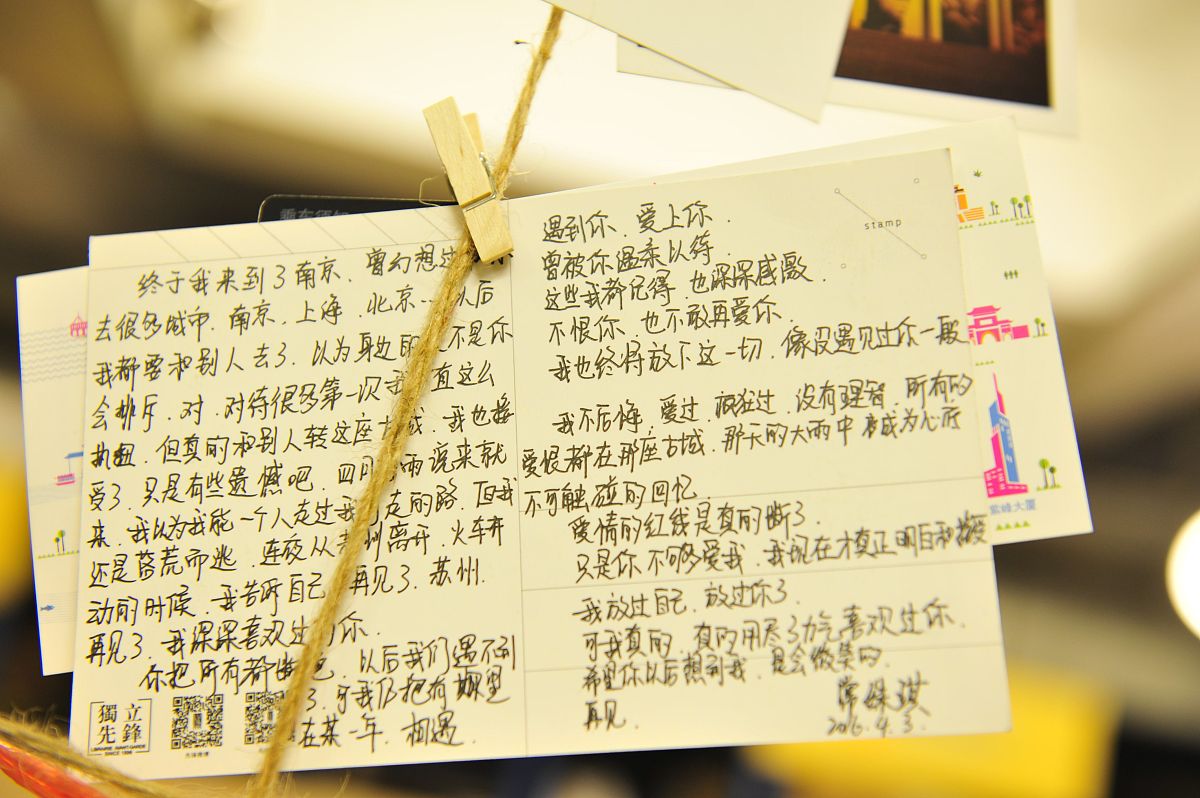 乘在须臾
终于我来到了南京．曾幻想过
去很多城市．南京．上海．北京…以后
我都要和别人去了．以为身边的 不是你
会排斥．对．对待很多第一次我 直这么
执拗．但真的和别人转这座古城．我也接
受了．只是有些遗憾吧．四月 雨说来就
来．我以为我能一个人走过我 走的路．但我
还是落荒而逃．连夜从 州离开．火车开
动的时候．我告诉自己．再见了．苏州．
再见了．我深深喜欢过 你．
你把所有都断 吧．以后我们遇不到
了．可我仍把有期望
在某一年．相遇．
獨立
先鋒
LIBRAIRIE AVANT-GARDE
SINCE 1996
先锋微博
stamp
遇到你．爱上你．
曾被你温柔以待．
这些我都记得．也深深感激．
不恨你．也不敢再爱你．
我也终将放下这一切．像没遇见过你一般
我不后悔．爱过．疯狂过．没有理智．所有的
爱恨都在那座古城．那天的大雨中 变成为心底
不可触碰的回忆．
爱情的红线是真的断了．
只是你不够爱我．我现在才真正明白和接受
我放过自己．放过你了．
可我真的．真的用尽了力气喜欢过你．
希望你以后想到我．是会微笑的．
再见．
2016.4.3.
紫峰大厦